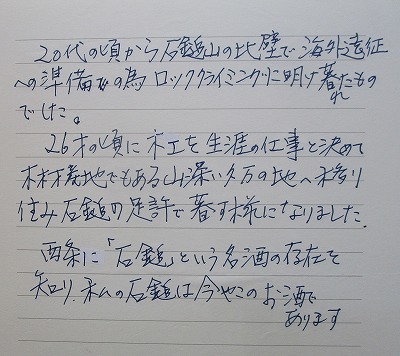 20代の頃から石鎚山の北壁で海外遠征
への準備の為 ロッククライミングに明け暮れたもの
でした。
26才の頃に木工を生涯の仕事と決めて
木材産地でもある山深い久万の地へ移り
住み石鎚の足許で暮す様になりました.
西条に「石鎚」という名酒の存在を
知り、私の石鎚は今やこのお酒で
あります